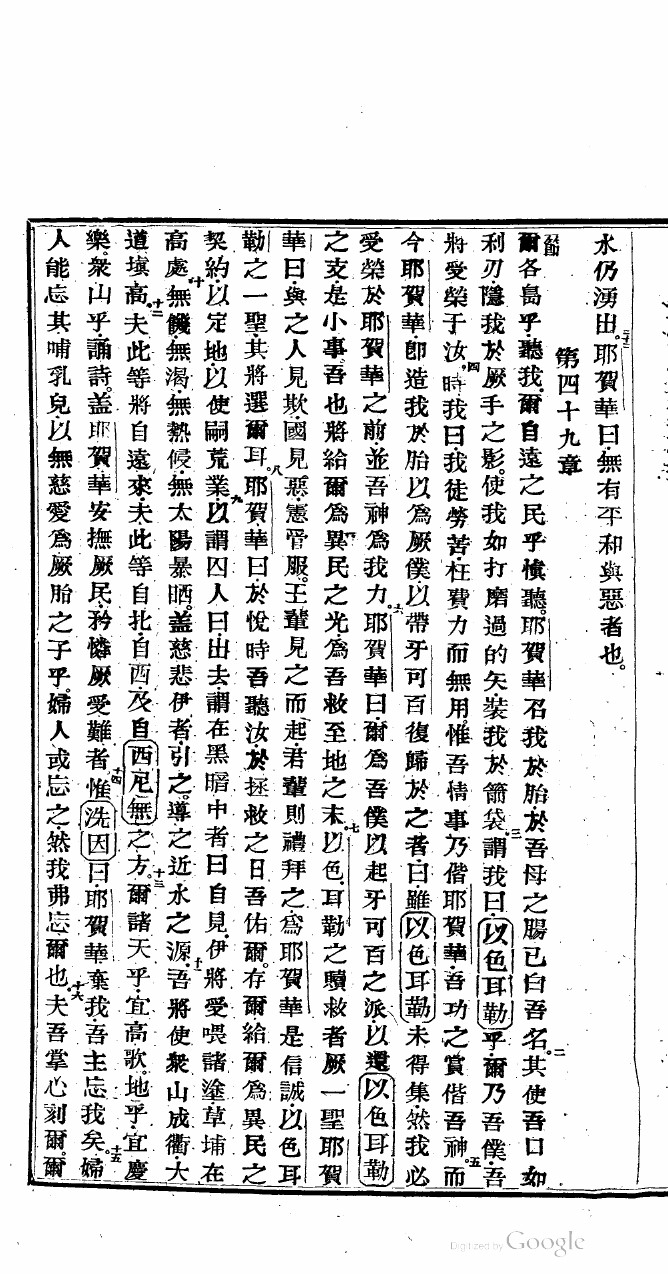 水仍湧出。二十二耶賀華曰、無有平和與惡者也。
第四十九章
爾各島乎、聽我、爾自遠之民乎、慎聽。耶賀華召我於胎、於吾母之腸已白吾名。二其使吾口如
利刃、隱我於厥手之影。使我如打磨過的矢、裝我於箭袋。三謂我曰、以色耳勒乎、爾乃吾僕、吾
將受榮于汝。四時我曰、我徒勞苦、枉費力而無用。惟吾情事乃偕耶賀華、吾功之賞偕吾神。五而
今耶賀華、卽造我於胎以爲厥僕、以帶牙可百復歸於之者曰、雖以色耳勒未得集、然我必
受榮於耶賀華之前、並吾神爲我力。六耶賀華曰、爾爲吾僕、以起牙可百之派、以還以色耳勒
之支、是小事、吾也將給爾爲異民之光、爲吾救至地之末。七以色耳勒之贖救者、厥一聖耶賀
華曰、與之人見欺、國見惡、憲管服。王輩見之而起、君輩則禮拜之、爲耶賀華是信誠、以色耳
勒之一聖、其將選爾耳。八耶賀華曰、於悅時吾聽汝、於拯救之日吾佑爾。存爾給爾爲異民之
契約、以定地、以使嗣荒業。九以謂囚人曰、出去、謂在黑暗中者曰、自見、伊將受喂諸塗、草埔在
高處。十無饑、無渴、無熱候、無太陽暴晒。蓋慈悲伊者引之。導之近水之源。十一吾將使衆山成衢、大
道塡高。十二夫此等將自遠來、夫此等自北、自西及自西尼無之方。十三爾諸天乎、宜高歌。地乎、宜慶
樂。衆山乎、誦詩。蓋耶賀華安撫厥民、矜憐厥受難者。十四惟洗因曰、耶賀華棄我、吾主忘我矣。十五婦
人能忘其哺乳兒、以無慈愛爲厥胎之子乎。婦人或忘之、然我弗忘爾也。十六夫吾掌心刻爾。爾
Digitized by Google